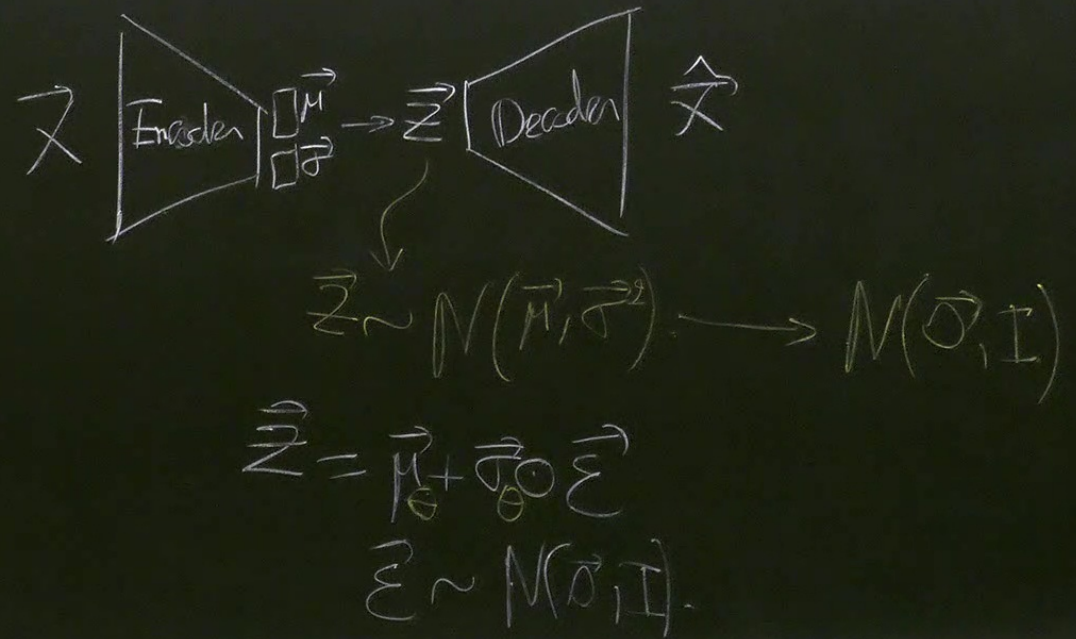 x⃗ Encoder μ⃗ σ⃗ → z⃗ Decoder x̂⃗
z⃗ ~ N(μ⃗, σ⃗²). → N(0⃗, I)
z⃗ = μ⃗_θ + σ⃗_θ ⊙ ε⃗
ε⃗ ~ N(0⃗, I).